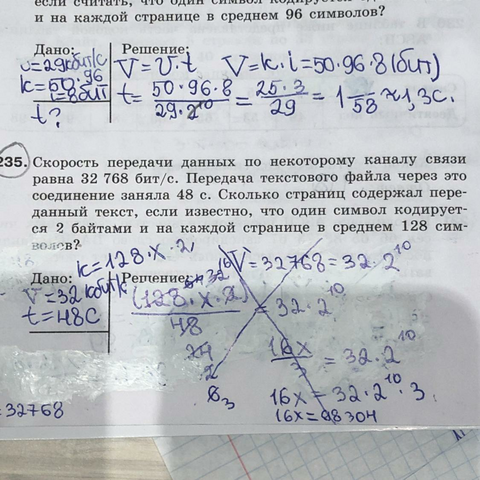 и на каждой странице в среднем 96 символов?
Дано:
υ=29кбит/с
k=50·96
i=8бит
t?
Решение:
V=υ·t V=k·i=50·96·8(бит)
t=50·96·8/29·2^10=25·3/29=1 /58≈1,3с.
235. Скорость передачи данных по некоторому каналу связи
равна 32 768 бит/с. Передача текстового файла через это
соединение заняла 48 с. Сколько страниц содержал пере-
данный текст, если известно, что один символ кодирует-
ся 2 байтами и на каждой странице в среднем 128 сим-
волов?
k=128·x·2
Дано:
V=32кбит/с
t=48с
Решение:
V=32768=32·2^10
(128·x·2)/48=32·2^10
16x/3=32·2^10
16x=32·2^10·3
16x=98304
=32768